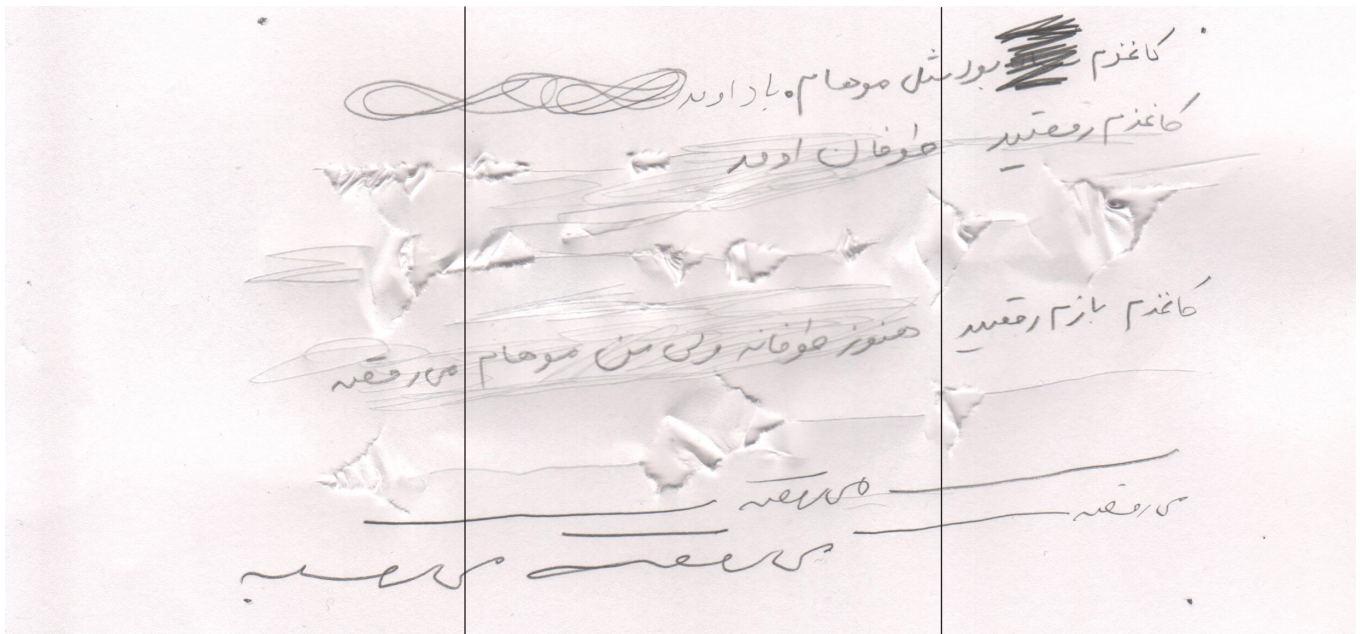 کاغذم بود مثل موهام. باد اومد
کاغذم رقصید طوفان اومد
کاغذم بازم رقصید هنوز طوفانه ولی من موهام می‌رقصه
می‌رقصه
می‌رقصه
می‌رقصه می‌رقصه